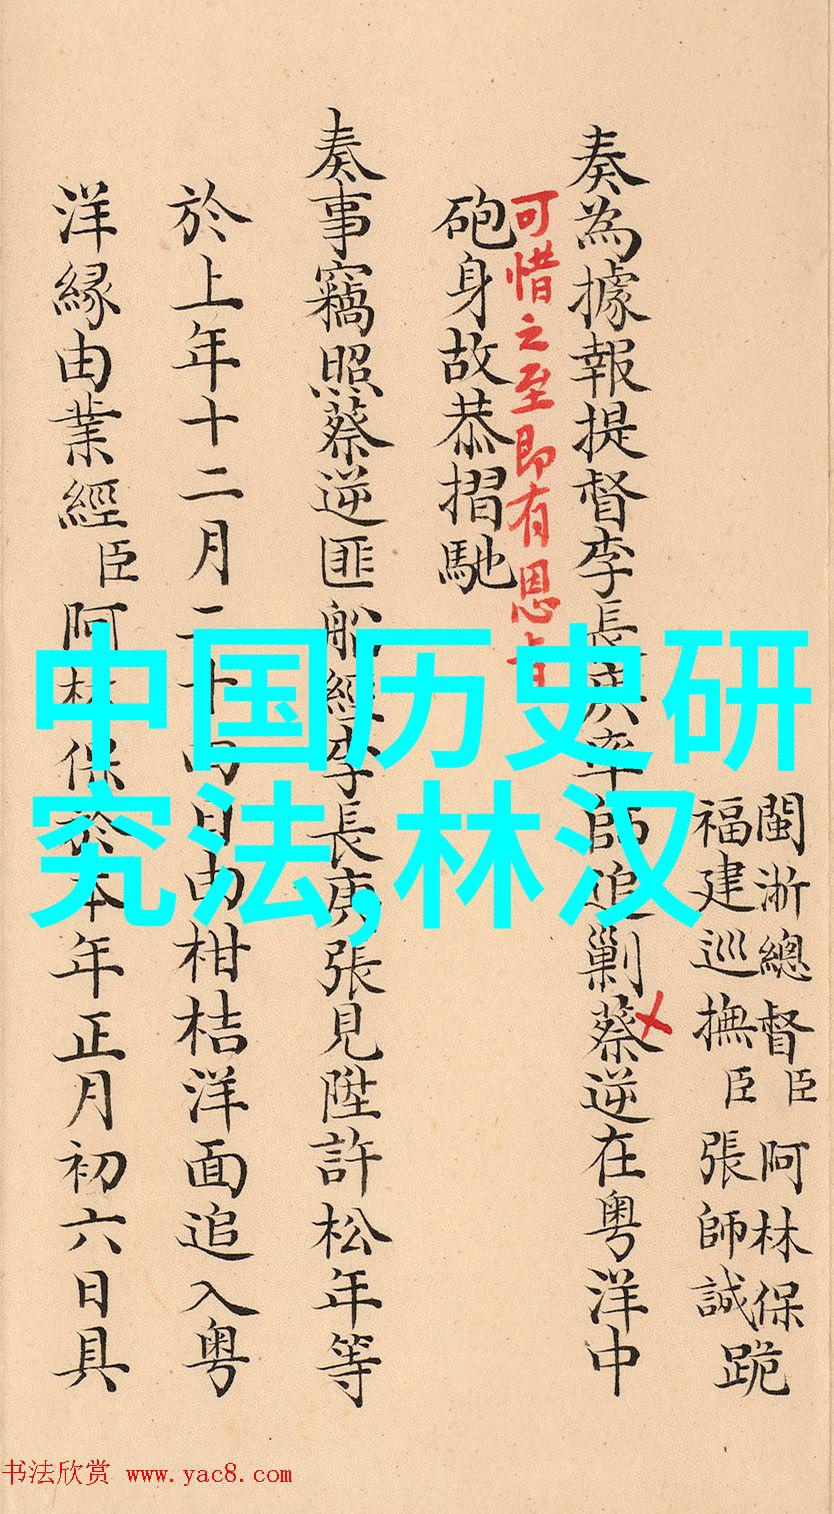 閩浙總督臣阿林保
福建巡撫臣張師誠
跪
奏為據報提督李長庚率師追剿蔡逆在粤洋中
可惜之至即有恩旨
砲身故恭摺馳
奏事竊照蔡逆匪船經李長庚張見陞許松年等
於上年十二月二十四日由柑桔洋面追入粤
洋縁由業經臣阿林保於本年正月初六日具
中国历史研
究法,林汉
书法欣赏 www.yac8.com